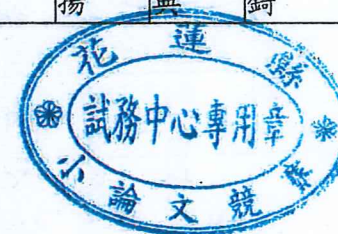 揚 興 錡
花蓮縣
試務中心專用章
小論文競賽